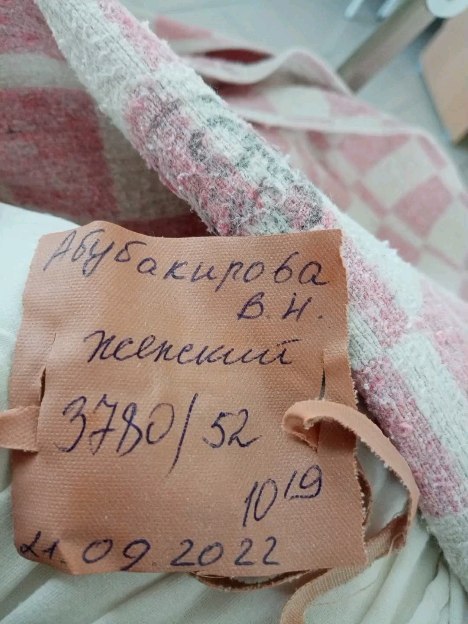 Абубакирова
В.Н.
женский
3780/52
10¹⁹
21.09.2022